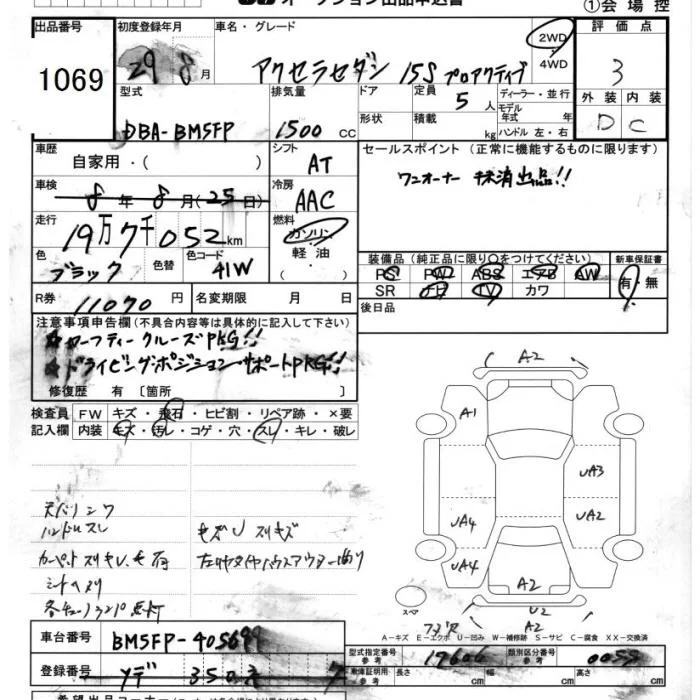 オークション出品申込書
①会場控
出品番号 1069
初度登録年月 29 8月
車名・グレード アクセラセダン 15S プロアクティブ
2WD・4WD
評価点 3
外装 D 内装 C
型式 DBA-BM5FP
排気量 1500 CC
ドア
形状
定員 5人
積載 kg
ディーラー・並行
モデル年式 年式
ハンドル 左・右
車歴 自家用・( )
シフト AT
セールスポイント (正常に機能するものに限ります)
ワンオーナー 抹消出品!!
車検 8年8月(25日)
冷房 AAC
走行 19万7千052km
燃料 ガソリン・軽油・( )
色 ブラック 色替
色コード 41W
装備品 (純正品に限り○をつけてください)
PS PW ABS エアB AW
SR ナビ TV カワ
新車保証書 有・無
R券 11070円
名変期限 月 日
後日品
注意事項申告欄 (不具合内容等は具体的に記入して下さい)
★セーフティークルーズPKG!!
★ドライビングポジションサポートPKG!!
修復歴 有 〔箇所 〕
検査員記入欄
FW キズ・飛石・ヒビ割・リペア跡・×要
内装 キズ・汚レ・コゲ・穴・スレ・キレ・破レ
天バリシワ
ハンドルスレ
カーペットスリキレ
モズU スリキズ
A2
A1
UA3
UA4
UA2
UA4
A2
U2
A2
スペア
A-キズ E-エクボ U-凹み W-補修跡 S-サビ C-腐食 XX-交換済
車台番号 BM5FP-4056
登録番号
型式指定番号 参考 17606
類別区分番号 参考
車庫証明用・参考 長さ cm 幅 cm 高さ cm
希望出品コーナー